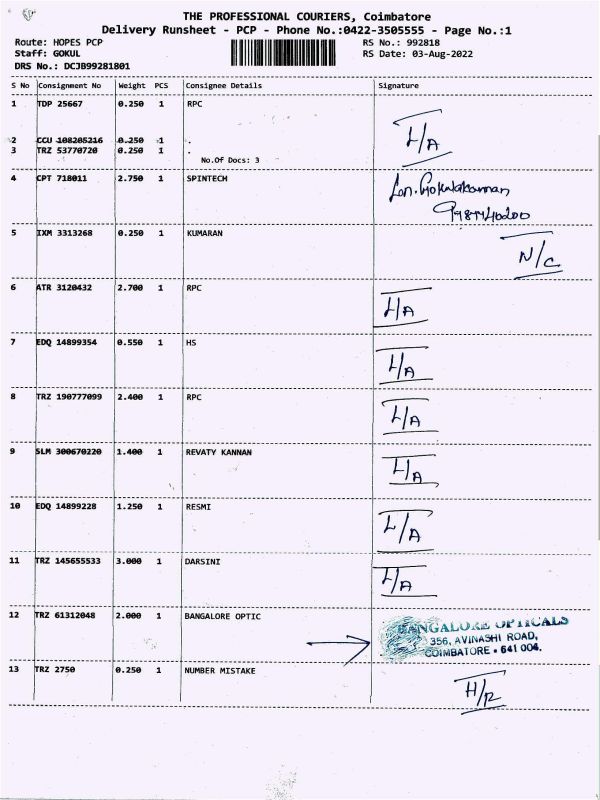 THE PROFESSIONAL COURIERS, Coimbatore
Delivery Runsheet - PCP - Phone No.:0422-3505555 - Page No.:1
Route: HOPES PCP RS No.: 992818
Staff: GOKUL RS Date: 03-Aug-2022
DRS No.: DCJB99281801
S No Consignment No Weight PCS Consignee Details Signature
1 TDP 25667 0.250 1 RPC
2 CCU 108205216 0.250 1 .
3 TRZ 53770720 0.250 1 . L/A
No.Of Docs: 3
4 CPT 718011 2.750 1 SPINTECH
5 IXM 3313268 0.250 1 KUMARAN N/C
6 ATR 3120432 2.700 1 RPC L/A
7 EDQ 14899354 0.550 1 HS L/A
8 TRZ 190777099 2.400 1 RPC L/A
9 SLM 300670220 1.400 1 REVATY KANNAN L/A
10 EDQ 14899228 1.250 1 RESMI L/A
11 TRZ 145655533 3.000 1 DARSINI L/A
12 TRZ 61312048 2.000 1 BANGALORE OPTIC BANGALORE OPTICALS
356, AVINASHI ROAD,
COIMBATORE - 641 004.
13 TRZ 2750 0.250 1 NUMBER MISTAKE H/R